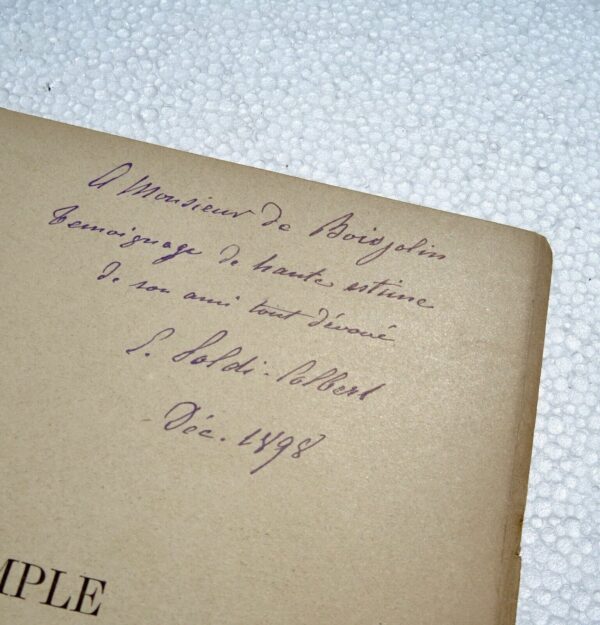 A Monsieur de Boisjolin
temoignage de haute estime
de son ami tout dévoué
E. Soldi-Colbert
Déc. 1898
MPLE